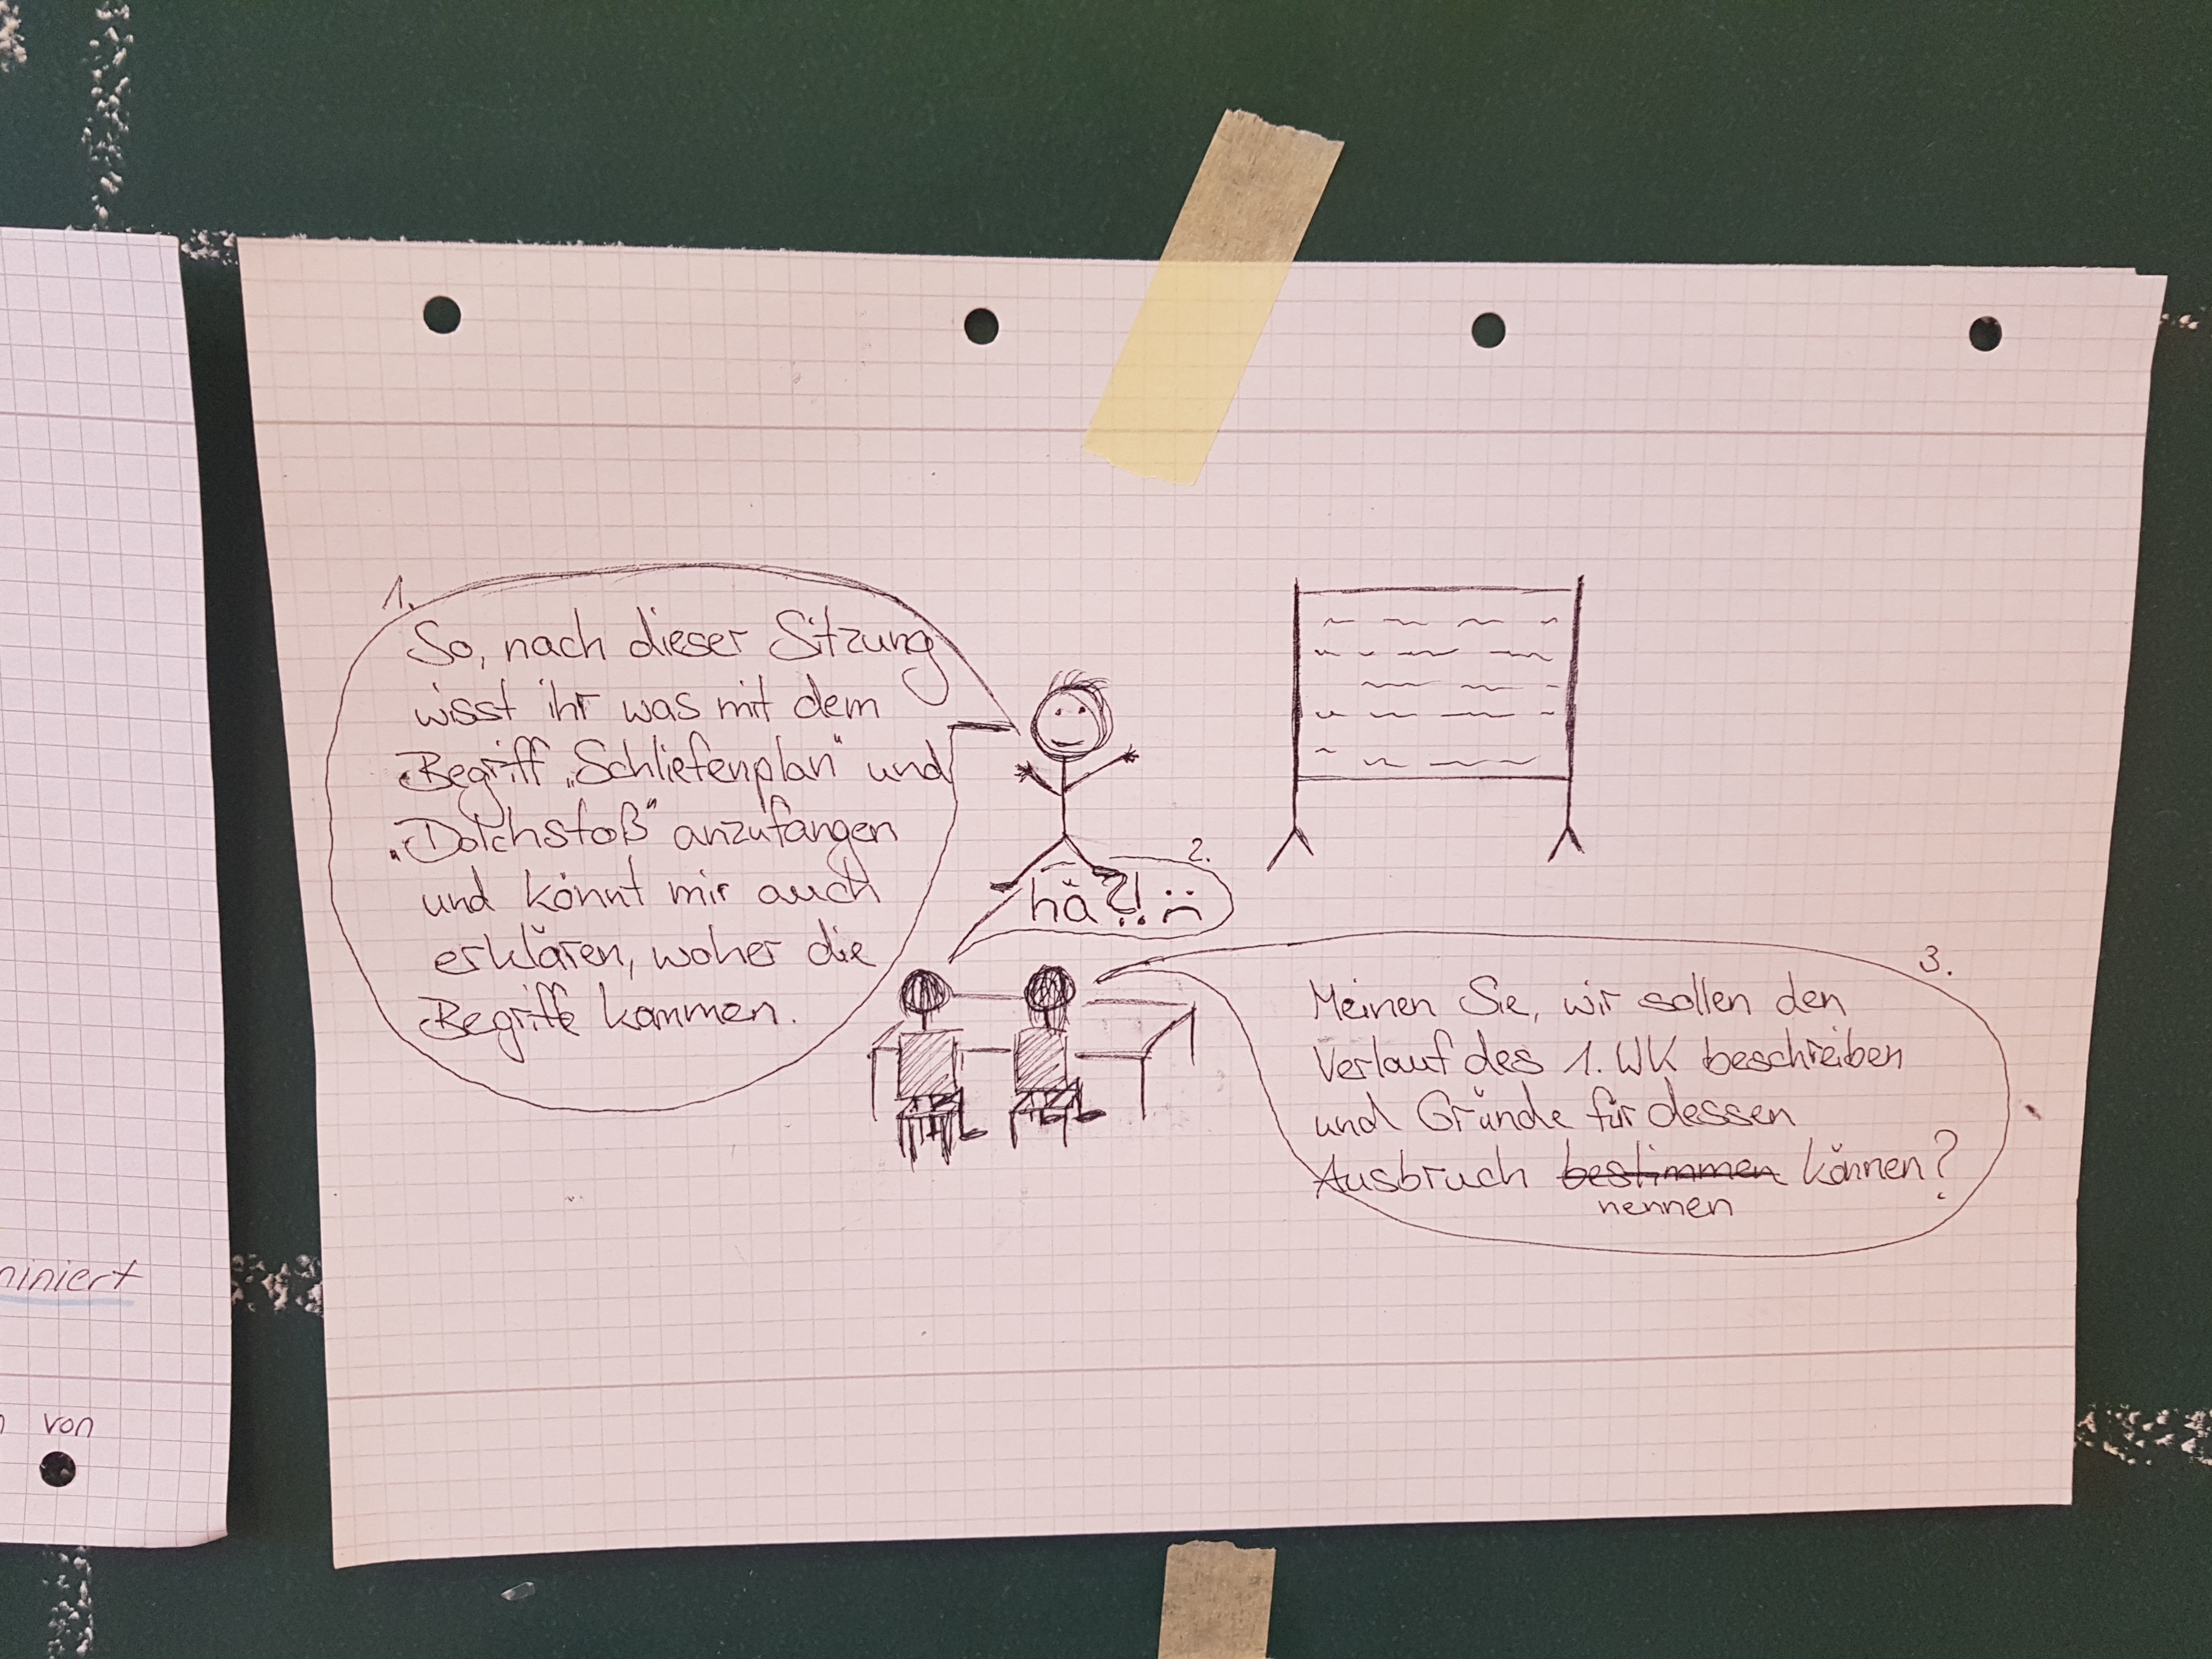 1.
So, nach dieser Sitzung
wisst ihr was mit dem
Begriff „Schliefenplan" und
„Dolchstoß" anzufangen
und könnt mir auch
erklären, woher die
Begriffe kommen.
2.
hä?!
3.
Meinen Sie, wir sollen den
Verlauf des 1. WK beschreiben
und Gründe für dessen
Ausbruch bestimmen können?
nennen
von